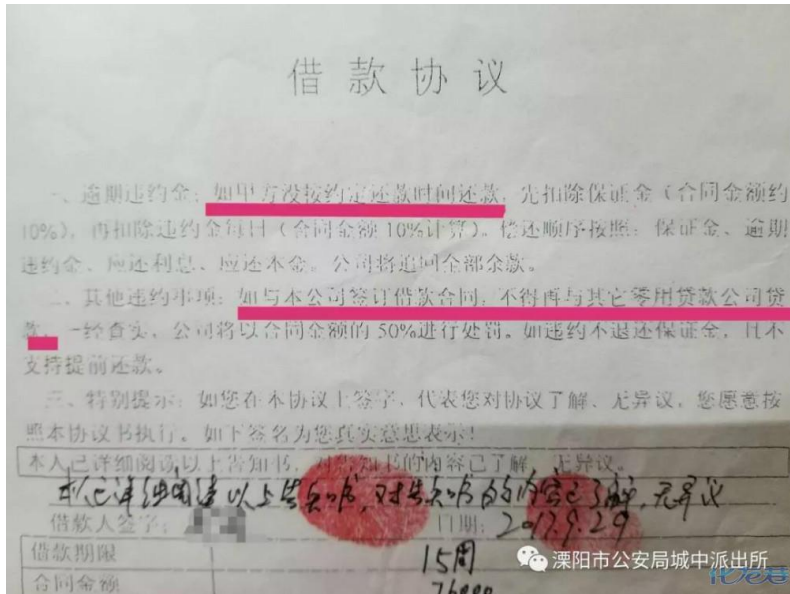 借款协议
一、逾期违约金：如甲方没按约定还款时间还款，先扣除保证金（合同金额约
10%），再扣除违约金每日（合同金额10%计算）。偿还顺序按照：保证金、逾期
违约金、应还利息、应还本金。公司将追回全部余款。
二、其他违约事项：如与本公司签订借款合同，不得再与其它零用贷款公司贷
款，一经查实，公司将以合同金额的50%进行处罚。如违约不退还保证金，且不
支持提前还款。
三、特别提示：如您在本协议上签字，代表您对协议了解、无异议，您愿意按
照本协议书执行。如下签名为您真实意思表示！
本人已详细阅读以上告知书，对告知书的内容已了解，无异议。
本人已详细阅读以上告知书，对告知书的内容已了解，无异议
借款人签字： 日期：2017.9.29
借款期限 15周
合同金额
溧阳市公安局城中派出所
化龙巷